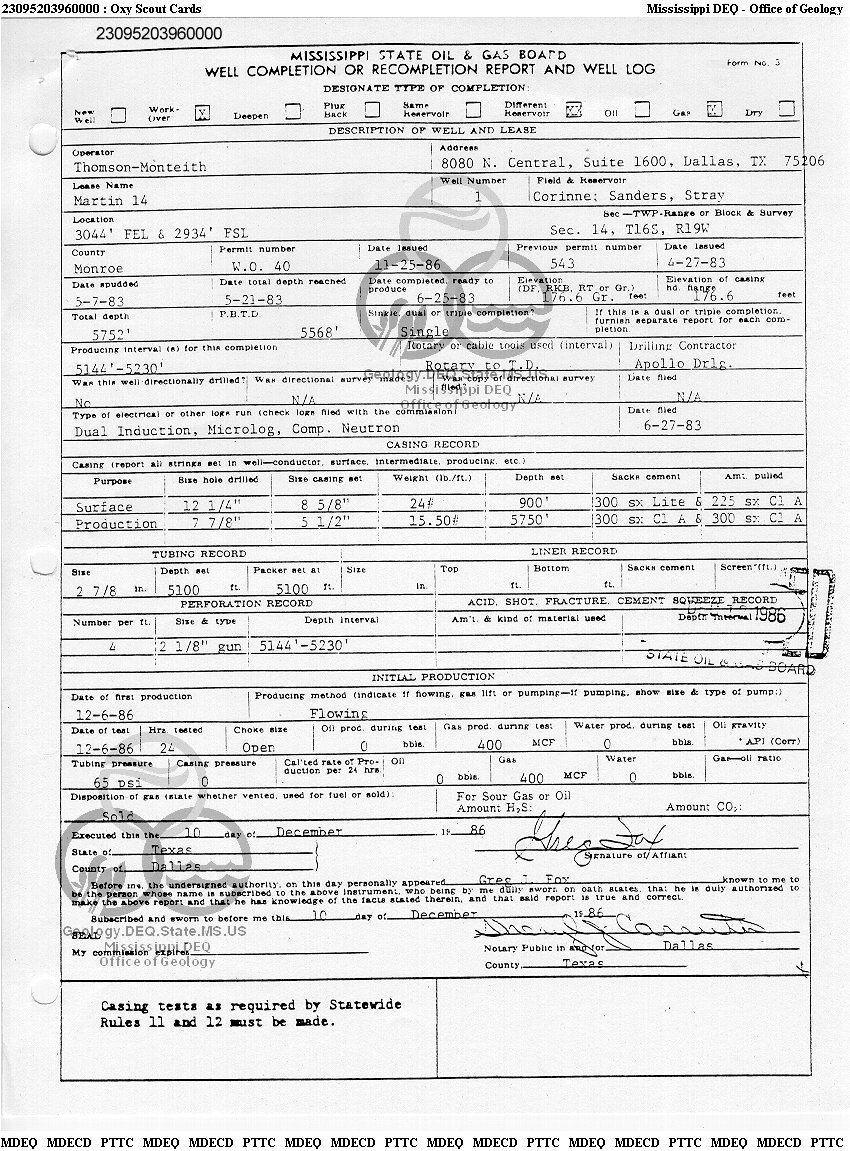 23095203960000 : Oxy Scout Cards Mississippi DEQ - Office of Geology
23095203960000
MISSISSIPPI STATE OIL & GAS BOARD
WELL COMPLETION OR RECOMPLETION REPORT AND WELL LOG Form No. 3
DESIGNATE TYPE OF COMPLETION:
New Well Work-Over X Deepen Plug Back Same Reservoir Different Reservoir XX Oil Gas X Dry
DESCRIPTION OF WELL AND LEASE
Operator Address
Thomson-Monteith 8080 N. Central, Suite 1600, Dallas, TX 75206
Lease Name Well Number Field & Reservoir
Martin 14 1 Corinne; Sanders, Stray
Location Sec—TWP-Range or Block & Survey
3044' FEL & 2934' FSL Sec. 14, T16S, R19W
County Permit number Date Issued Previous permit number Date Issued
Monroe W.O. 40 11-25-86 543 4-27-83
Date spudded Date total depth reached Date completed, ready to produce Elevation (DF, RKB, RT or Gr.) Elevation of casing hd. flange
5-7-83 5-21-83 6-25-83 176.6 Gr. feet 176.6 feet
Total depth P.B.T.D. Single, dual or triple completion? If this is a dual or triple completion, furnish separate report for each completion
5752' 5568' Single
Producing interval (s) for this completion Rotary or cable tools used (interval) Drilling Contractor
5144'-5230' Rotary to T.D. Apollo Drlg.
Geology.DEQ.State.MS.US
Mississippi DEQ
Office of Geology
Was this well directionally drilled? Was directional survey made? Was copy of directional survey filed? Date filed
No N/A N/A N/A
Type of electrical or other logs run (check logs filed with the commission) Date filed
Dual Induction, Microlog, Comp. Neutron 6-27-83
CASING RECORD
Casing (report all strings set in well—conductor, surface, intermediate, producing, etc.)
Purpose Size hole drilled Size casing set Weight (lb./ft.) Depth set Sacks cement Amt. pulled
Surface 12 1/4" 8 5/8" 24# 900' 300 sx Lite & 225 sx Cl A
Production 7 7/8" 5 1/2" 15.50# 5750' 300 sx Cl A & 300 sx Cl A
TUBING RECORD LINER RECORD
Size Depth set Packer set at Size Top Bottom Sacks cement Screen (ft.)
2 7/8 in. 5100 ft. 5100 ft. in. ft. ft.
PERFORATION RECORD ACID, SHOT, FRACTURE, CEMENT SQUEEZE RECORD
Number per ft. Size & type Depth Interval Am't. & kind of material used Depth Interval
1986
4 2 1/8" gun 5144'-5230'
STATE OIL & GAS BOARD
INITIAL PRODUCTION
Date of first production Producing method (indicate if flowing, gas lift or pumping—if pumping, show size & type of pump:)
12-6-86 Flowing
Date of test Hrs. tested Choke size Oil prod. during test Gas prod. during test Water prod. during test Oil gravity
12-6-86 24 Open 0 bbls. 400 MCF 0 bbls. ° API (Corr)
Tubing pressure Casing pressure Cal'ted rate of Production per 24 hrs. Oil Gas Water Gas—oil ratio
65 psi 0 0 bbls. 400 MCF 0 bbls.
Disposition of gas (state whether vented, used for fuel or sold): For Sour Gas or Oil
Sold Amount H2S: Amount CO2:
Executed this the 10 day of December, 19 86
State of Texas Greg Fox
Signature of Affiant
County of Dallas
Before me, the undersigned authority, on this day personally appeared Greg L. Fox known to me to
be the person whose name is subscribed to the above instrument, who being by me dully sworn on oath states, that he is duly authorized to
make the above report and that he has knowledge of the facts stated therein, and that said report is true and correct.
Subscribed and sworn to before me this 10 day of December, 19 86
Geology.DEQ.State.MS.US
SEAL
Mississippi DEQ
Notary Public in and for Dallas
My commission expires
Office of Geology
County, Texas
Casing tests as required by Statewide
Rules 11 and 12 must be made.
MDEQ MDECD PTTC MDEQ MDECD PTTC MDEQ MDECD PTTC MDEQ MDECD PTTC MDEQ MDECD PTTC MDEQ MDECD PTTC